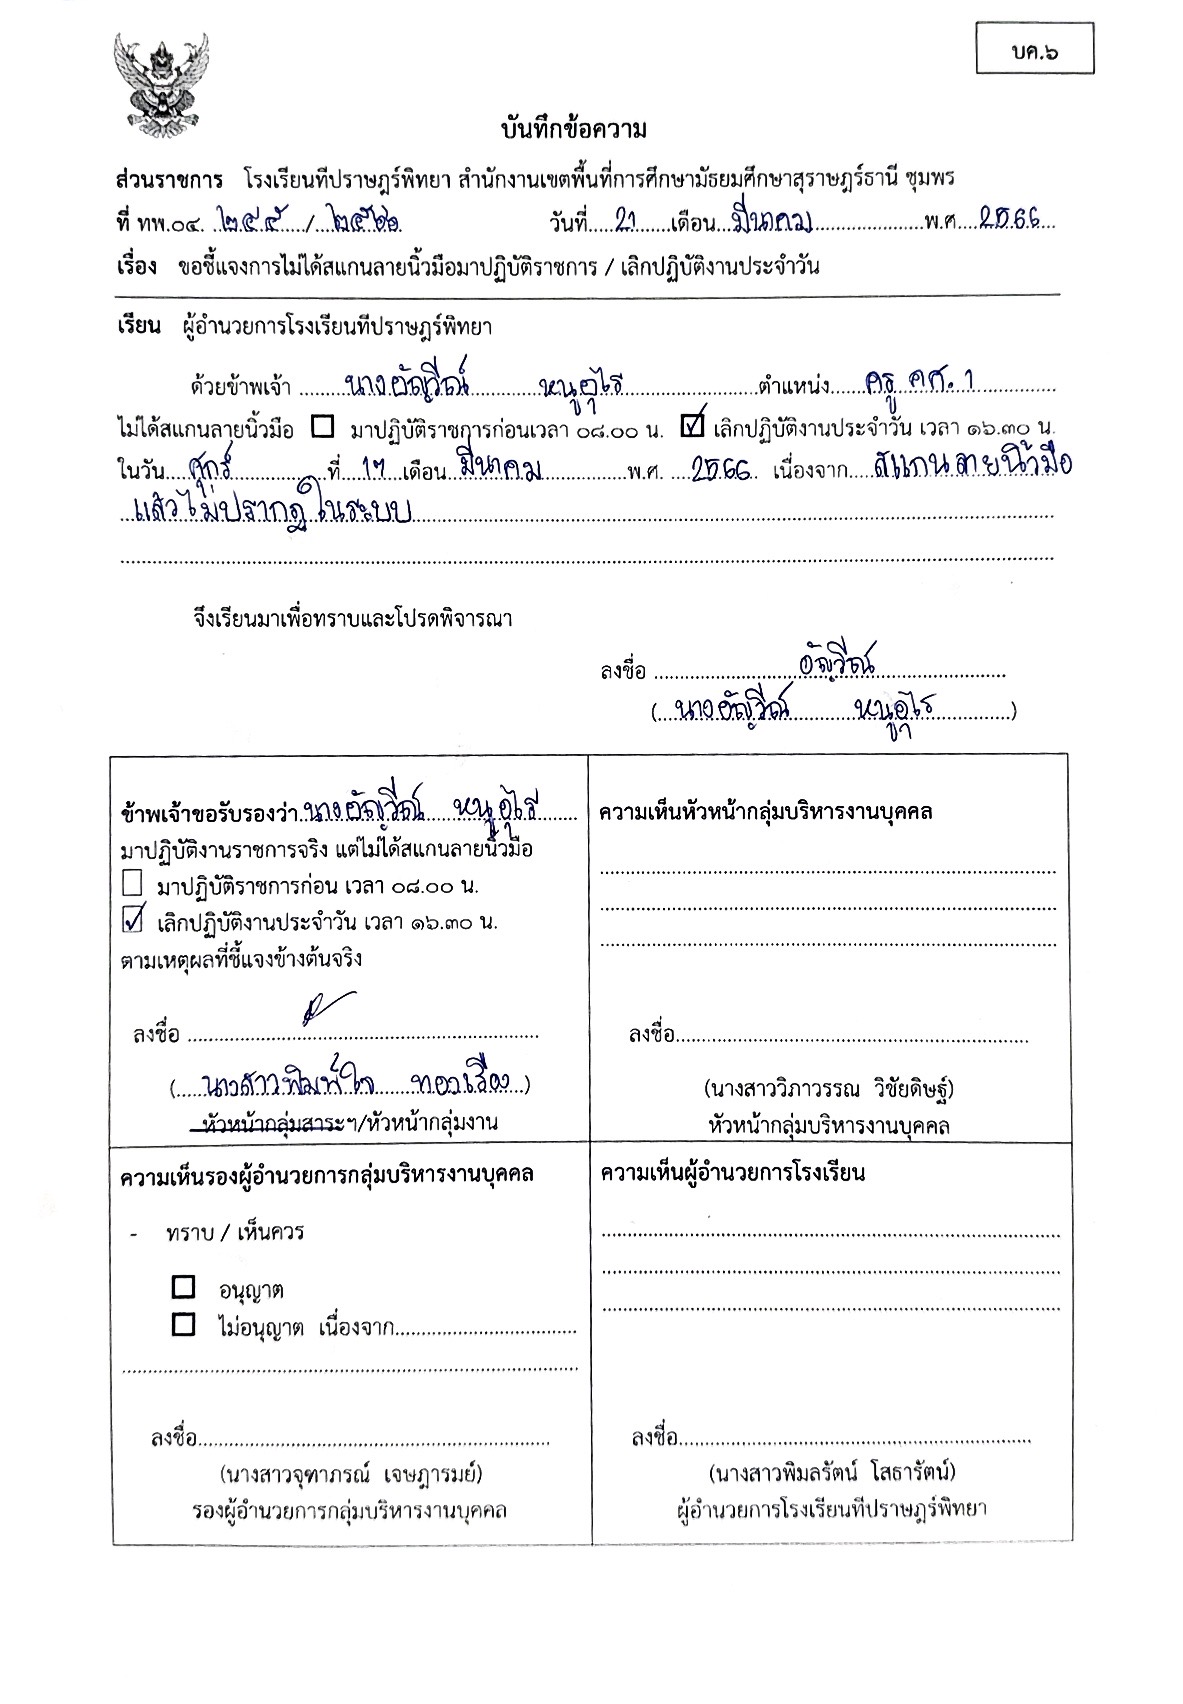 บค.๖
บันทึกข้อความ
ส่วนราชการ โรงเรียนทีปราษฎร์พิทยา สำนักงานเขตพื้นที่การศึกษามัธยมศึกษาสุราษฎร์ธานี ชุมพร
ที่ ทพ.๐๔. ๒๔๕ / ๒๕๖๖ วันที่ 21 เดือน มีนาคม พ.ศ. 2566
เรื่อง ขอชี้แจงการไม่ได้สแกนลายนิ้วมือมาปฏิบัติราชการ / เลิกปฏิบัติงานประจำวัน
เรียน ผู้อำนวยการโรงเรียนทีปราษฎร์พิทยา
ด้วยข้าพเจ้า นางอัญวีณ์ หนูอุไร ตำแหน่ง ครู คศ.1
ไม่ได้สแกนลายนิ้วมือ ☐ มาปฏิบัติราชการก่อนเวลา ๐๘.๐๐ น. ☑ เลิกปฏิบัติงานประจำวัน เวลา ๑๖.๓๐ น.
ในวัน ศุกร์ ที่ 17 เดือน มีนาคม พ.ศ. 2566 เนื่องจาก สแกนลายนิ้วมือ
แล้วไม่ปรากฏในระบบ
จึงเรียนมาเพื่อทราบและโปรดพิจารณา
ลงชื่อ อัญวีณ์
(นางอัญวีณ์ หนูอุไร)
ข้าพเจ้าขอรับรองว่า นางอัญวีณ์ หนูอุไร
มาปฏิบัติงานราชการจริง แต่ไม่ได้สแกนลายนิ้วมือ
☐ มาปฏิบัติราชการก่อน เวลา ๐๘.๐๐ น.
☑ เลิกปฏิบัติงานประจำวัน เวลา ๑๖.๓๐ น.
ตามเหตุผลที่ชี้แจงข้างต้นจริง
ลงชื่อ
(นางสาวพิมพ์ใจ ทองเรือง)
หัวหน้ากลุ่มสาระฯ/หัวหน้ากลุ่มงาน
ความเห็นหัวหน้ากลุ่มบริหารงานบุคคล
ลงชื่อ
(นางสาววิภาวรรณ วิชัยดิษฐ์)
หัวหน้ากลุ่มบริหารงานบุคคล
ความเห็นรองผู้อำนวยการกลุ่มบริหารงานบุคคล
- ทราบ / เห็นควร
☐ อนุญาต
☐ ไม่อนุญาต เนื่องจาก
ลงชื่อ
(นางสาวจุฑาภรณ์ เจษฎารมย์)
รองผู้อำนวยการกลุ่มบริหารงานบุคคล
ความเห็นผู้อำนวยการโรงเรียน
ลงชื่อ
(นางสาวพิมลรัตน์ โสธารัตน์)
ผู้อำนวยการโรงเรียนทีปราษฎร์พิทยา